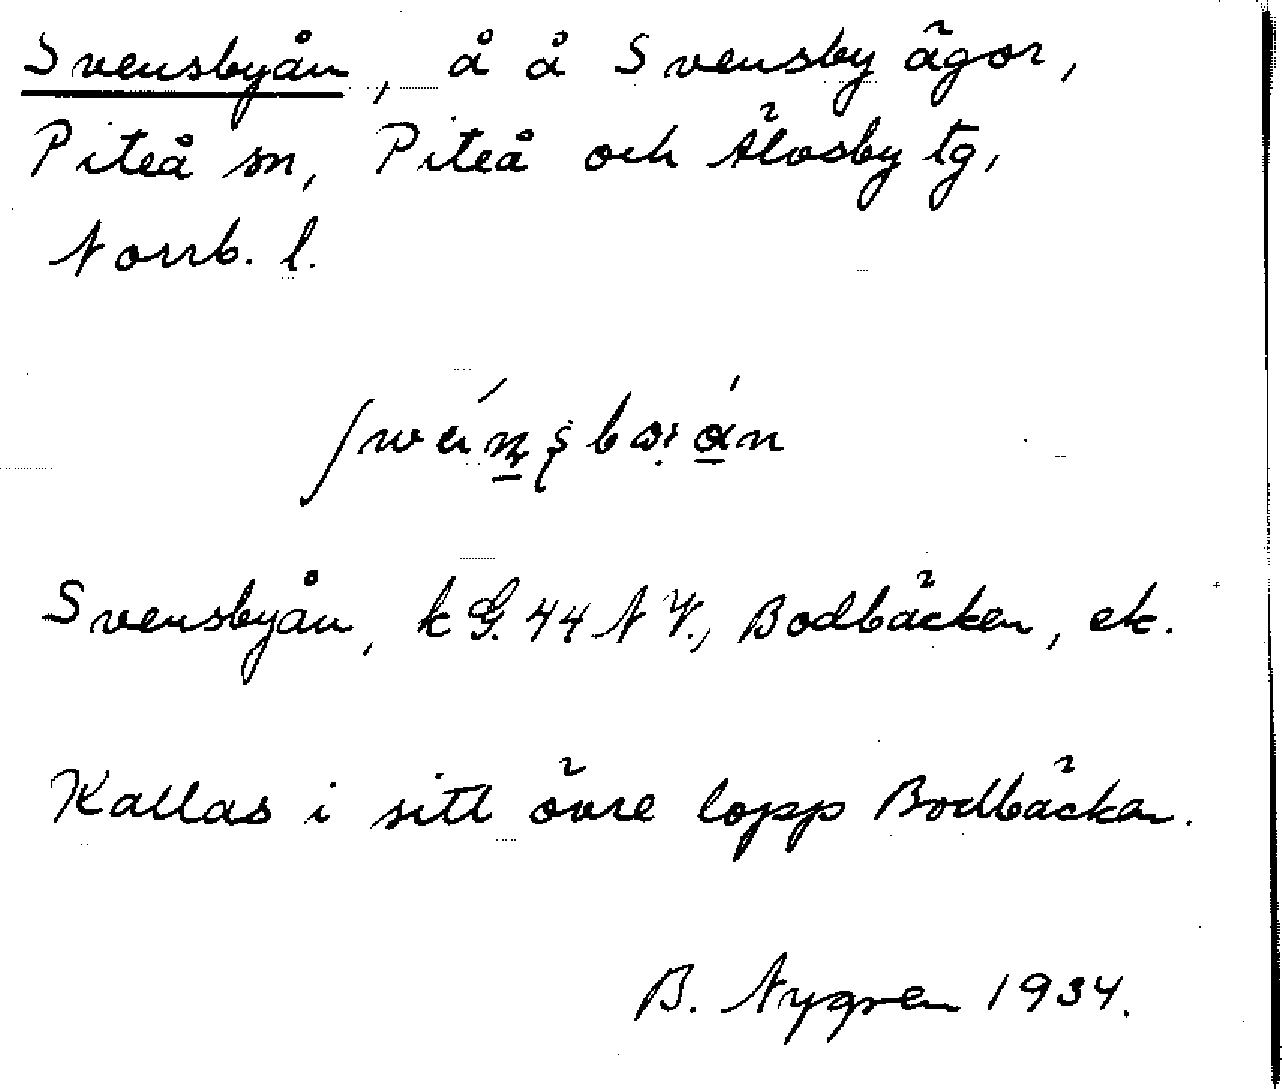 Svensbyån, å å Svensby ägor,
Piteå sn, Piteå och Älvsby tg,
Norrb. l.
Svensbyån, kG. 44 NV., Bodbäcken, ek.
Kallas i sitt övre lopp Bodbäcken.
B. Nygren 1934.